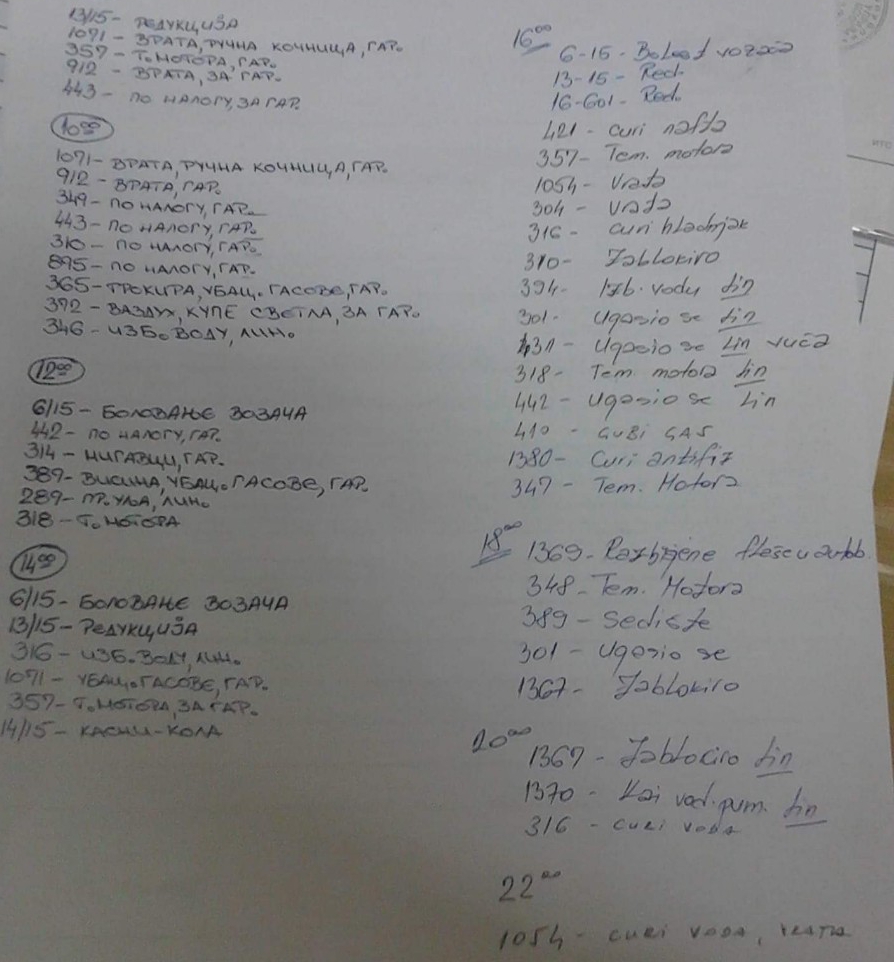 13/15 - РЕДУКЦИЈА
1071 - ВРАТА, РУЧНА КОЧНИЦА, ГАР.
357 - Т. МОТОРА, ГАР.
912 - ВРАТА, ЗА ГАР.
443 - ПО НАЛОГУ, ЗА ГАР.
10⁰⁰
1071 - ВРАТА, РУЧНА КОЧНИЦА, ГАР.
912 - ВРАТА, ГАР.
349 - ПО НАЛОГУ, ГАР.
443 - ПО НАЛОГУ, ГАР.
310 - ПО НАЛОГУ, ГАР.
895 - ПО НАЛОГУ, ГАР.
365 - ТРОКИРА, УБАЦ. ГАСОВЕ, ГАР.
392 - ВАЗДУХ, КУПЕ СВЕТЛА, ЗА ГАР.
346 - ИЗБ. ВОДУ, ЛИН.
12⁰⁰
6/15 - БОЛОВАЊЕ ВОЗАЧА
442 - ПО НАЛОГУ, ГАР.
314 - МИГАВЦИ, ГАР.
389 - ВИСИНА, УБАЦ. ГАСОВЕ, ГАР.
289 - ПР. УЉА, ЛИН.
318 - Т. МОТОРА
14⁰⁰
6/15 - БОЛОВАЊЕ ВОЗАЧА
13/15 - РЕДУКЦИЈА
316 - ИЗБ. ВОДУ, ЛИН.
1071 - УБАЦ. ГАСОВЕ, ГАР.
357 - Т. МОТОРА, ЗА ГАР.
14/15 - КАСНИ - КОЛА
16⁰⁰
6-15 - Bolest vozača
13-15 - Red.
16-601 - Red.
421 - curi nafta
357 - Tem. motora
1054 - Vrata
304 - vrata
316 - curi hladnjak
310 - Zablokiro
394 - Izb. vodu Lin
301 - Ugasio se Lin
431 - Ugasio se Lin vuča
318 - Tem motora Lin
442 - Ugasio se Lin
410 - GUBI GAS
1380 - Curi antifiz
347 - Tem. Motora
18⁰⁰
1369 - Razbijene flaše u autob.
348 - Tem. Motora
389 - Sediste
301 - Ugasio se
1367 - Zablokiro
20⁰⁰
1367 - Zablokiro Lin
1370 - vod. pum. Lin
316 - CURI VODA
22⁰⁰
1054 - CURI VODA, VRATA